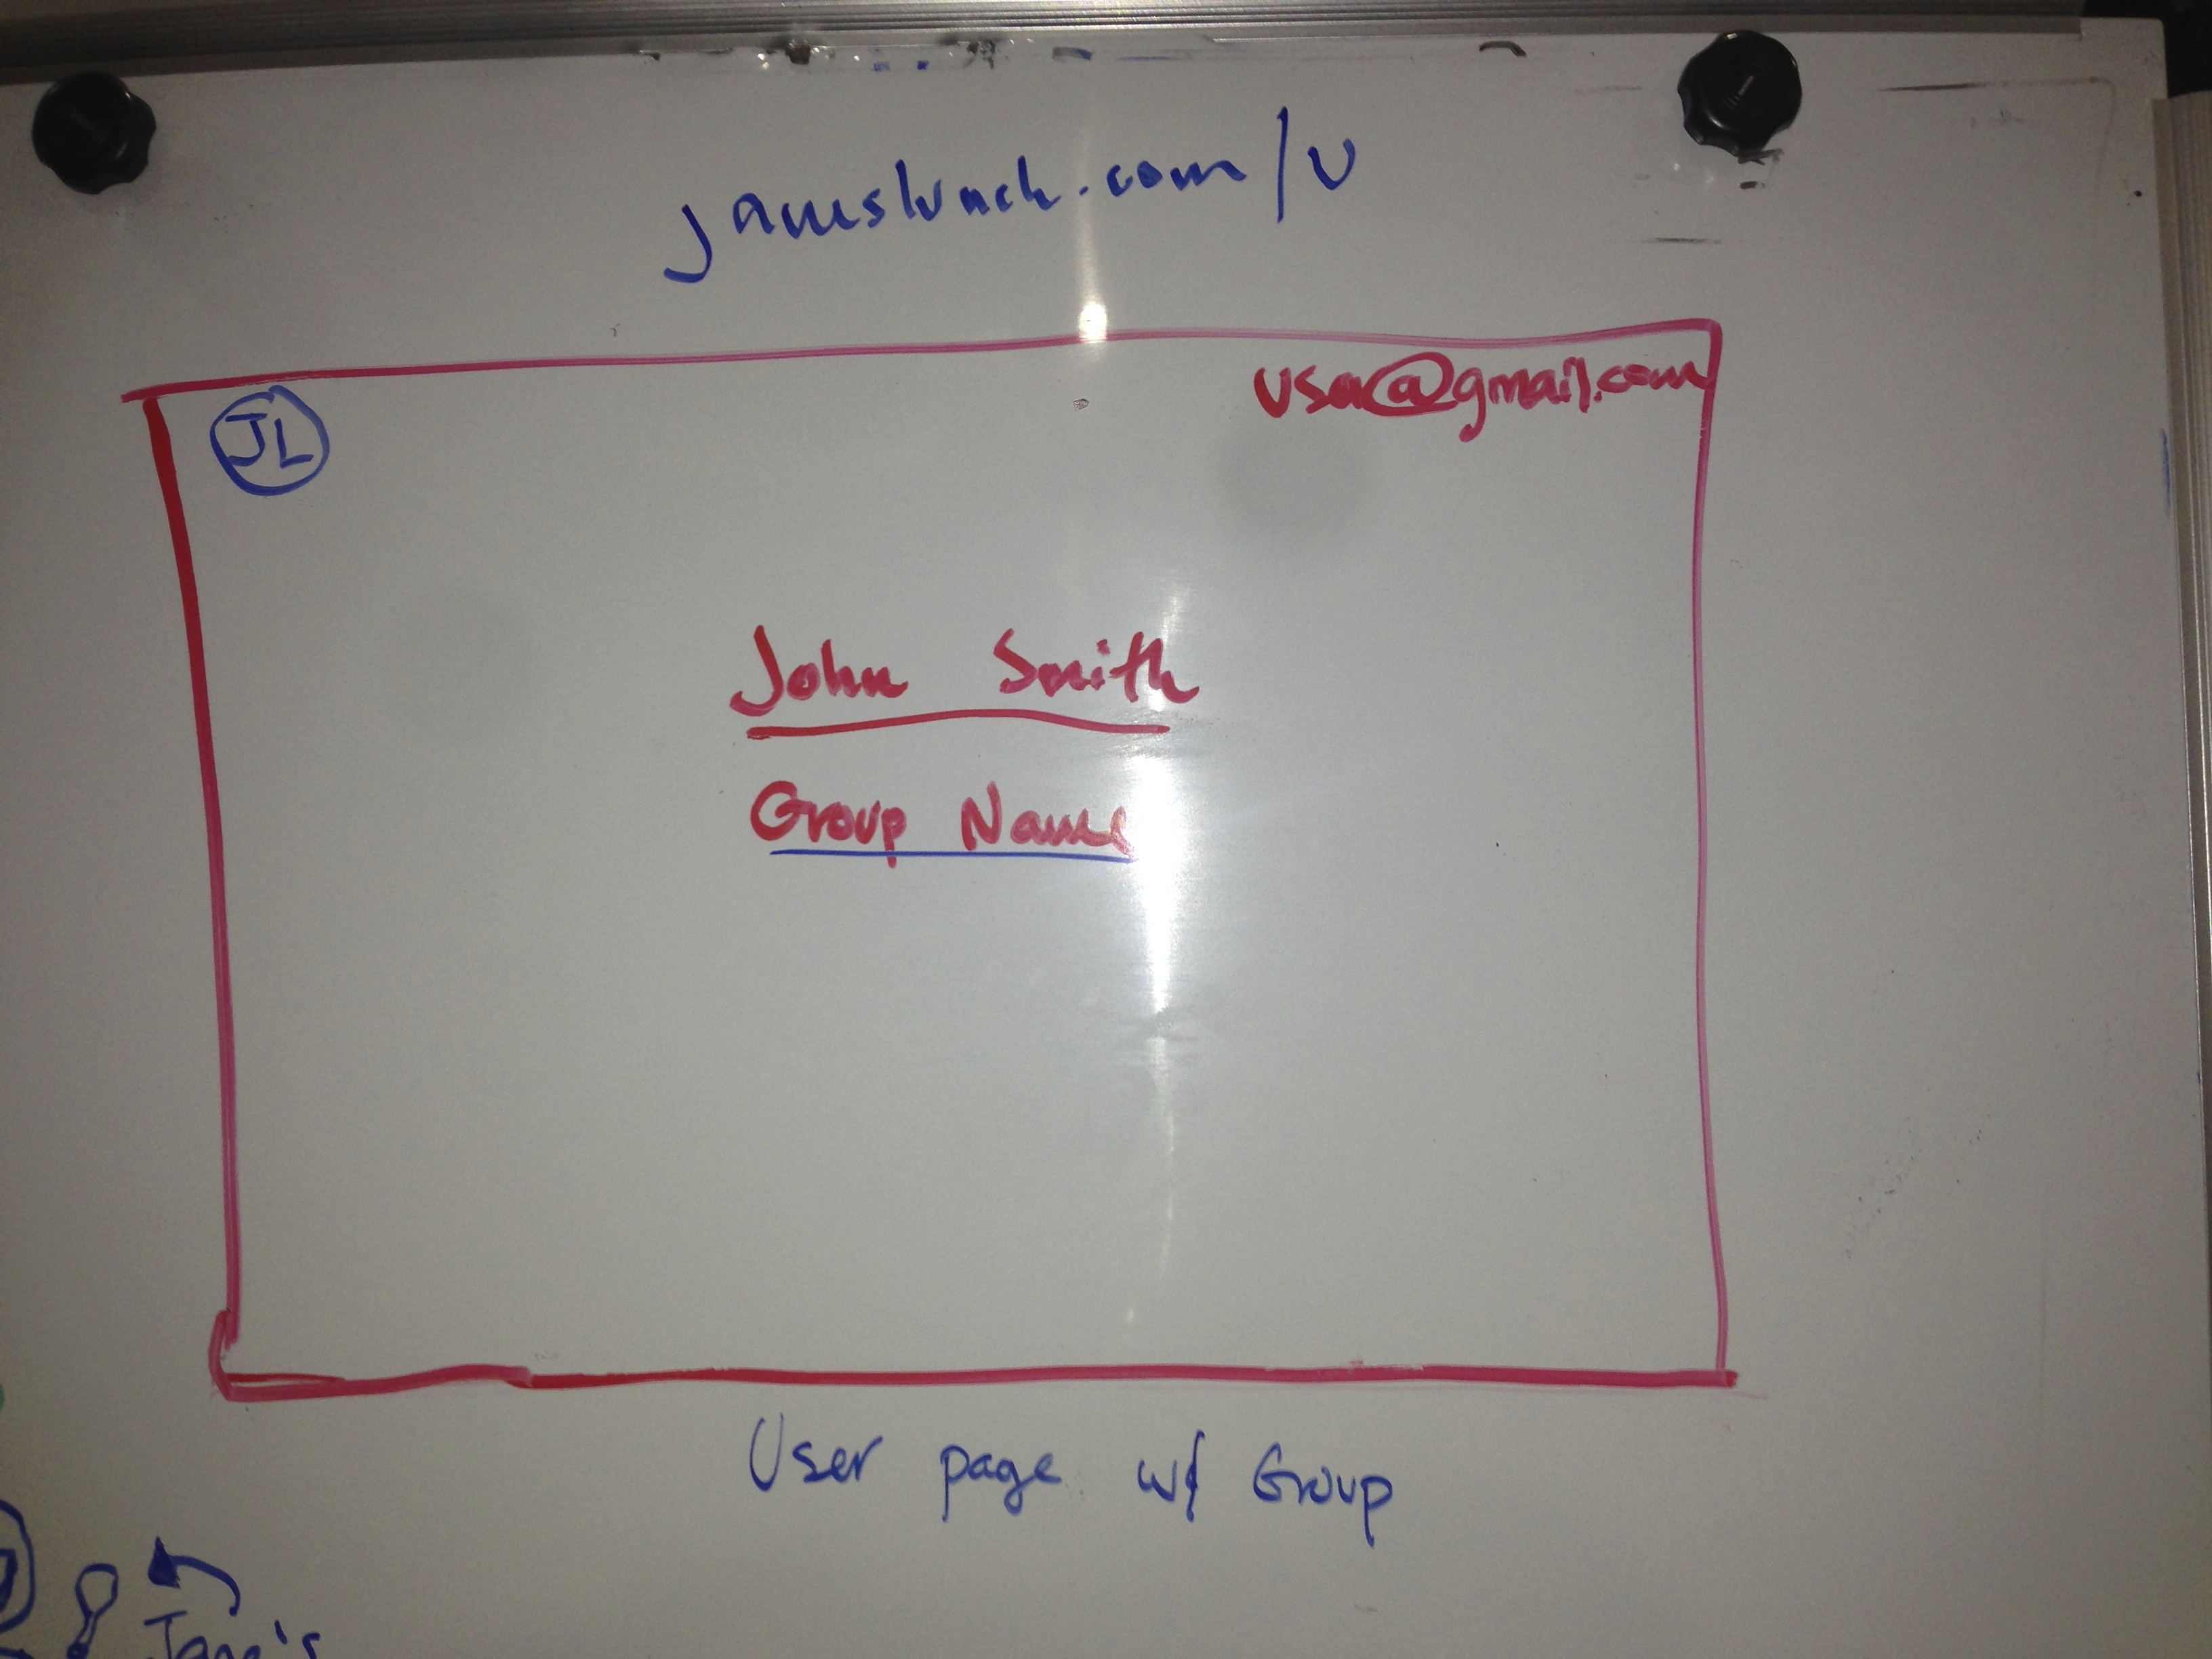 jameslunch.com/u
JL
user@gmail.com
John Smith
Group Name
User page w/ Group